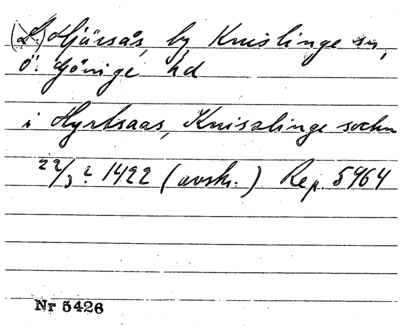 (L.) Hjärsås, by Knislinge sn,
Ö. Göinge hd
i Hyrtsaas, Knisslinge sochn
22/3 ? 1422 (avskr.) Rep. 5964
Nr 5426